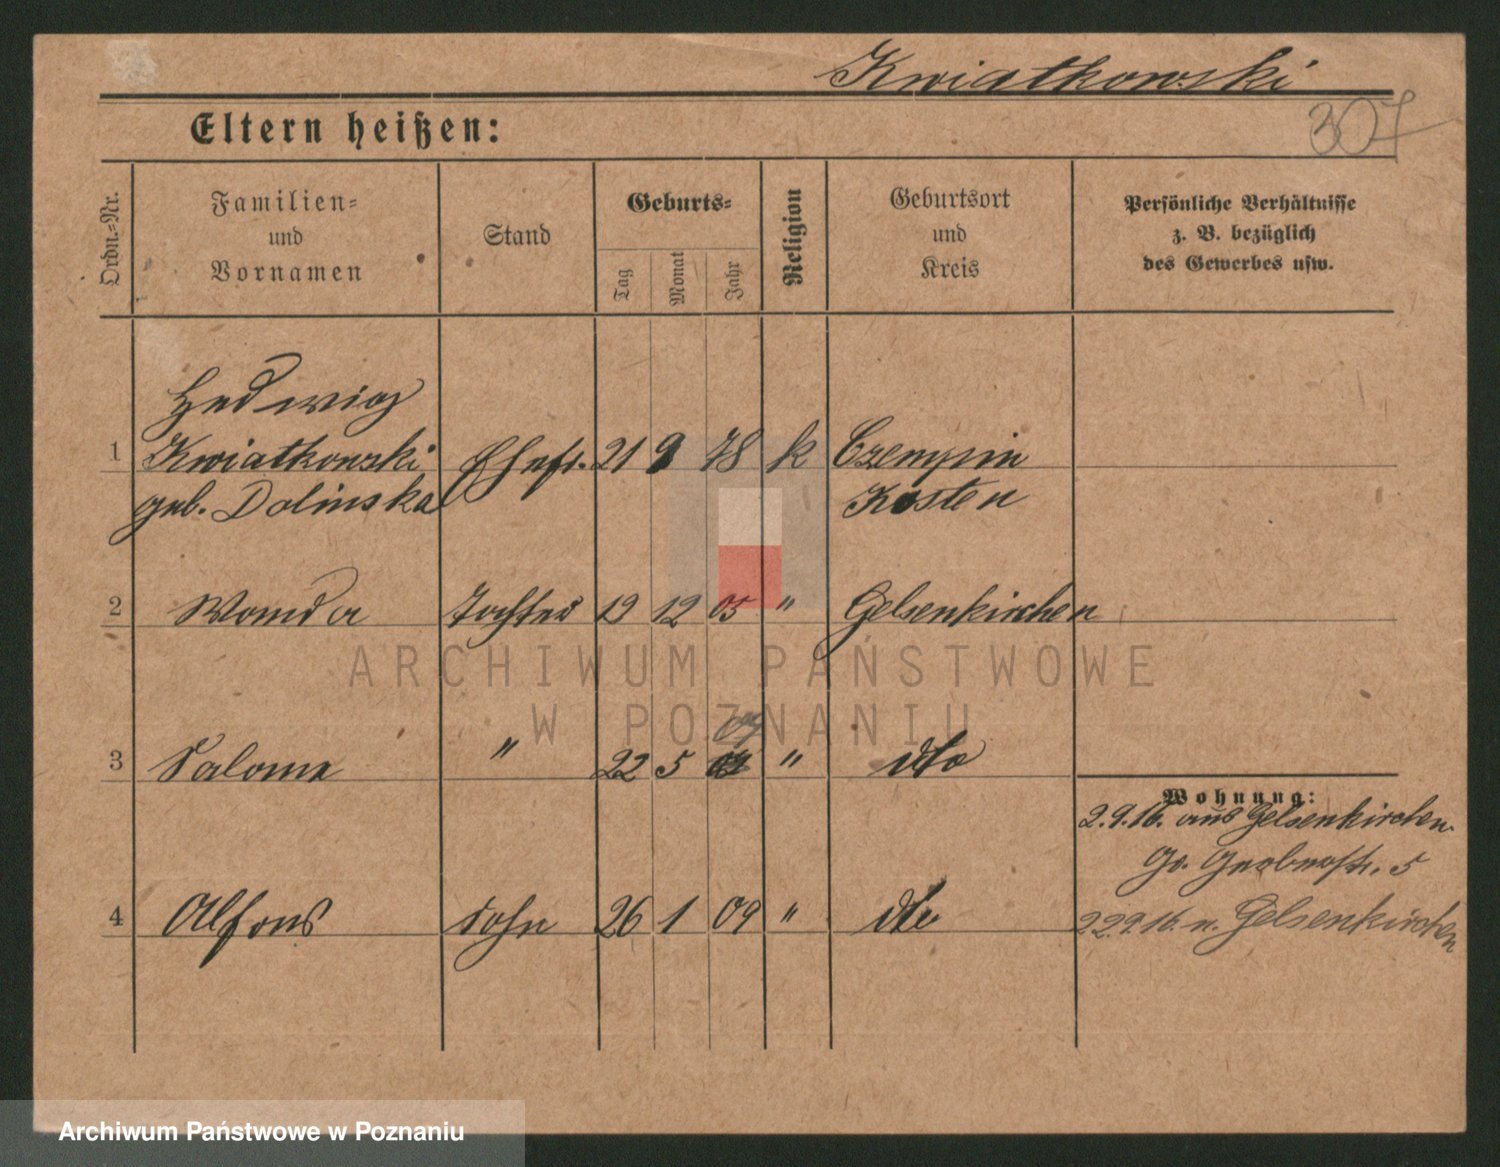 Kwiatkowski
307
Eltern heißen:
Ordn.-Nr.
Familien-
und
Vornamen
Stand
Geburts-
Tag
Monat
Jahr
Religion
Geburtsort
und
Kreis
Persönliche Verhältnisse
z. B. bezüglich
des Gewerbes usw.
Hedwig
1 Kwiatkowski Ehefr. 21 9 78 k Czempin
geb. Dolinska Kosten
2 Wanda Tochter 19 12 05 " Gelsenkirchen
ARCHIWUM PAŃSTWOWE
W POZNANIU
07
3 Salome " 22 5 " dto
Wohnung:
2.9.16. aus Gelsenkirchen
Gr. Gerberstr. 5
4 Alfons Sohn 26 1 09 " dto
22.9.16. n. Gelsenkirchen
Archiwum Państwowe w Poznaniu